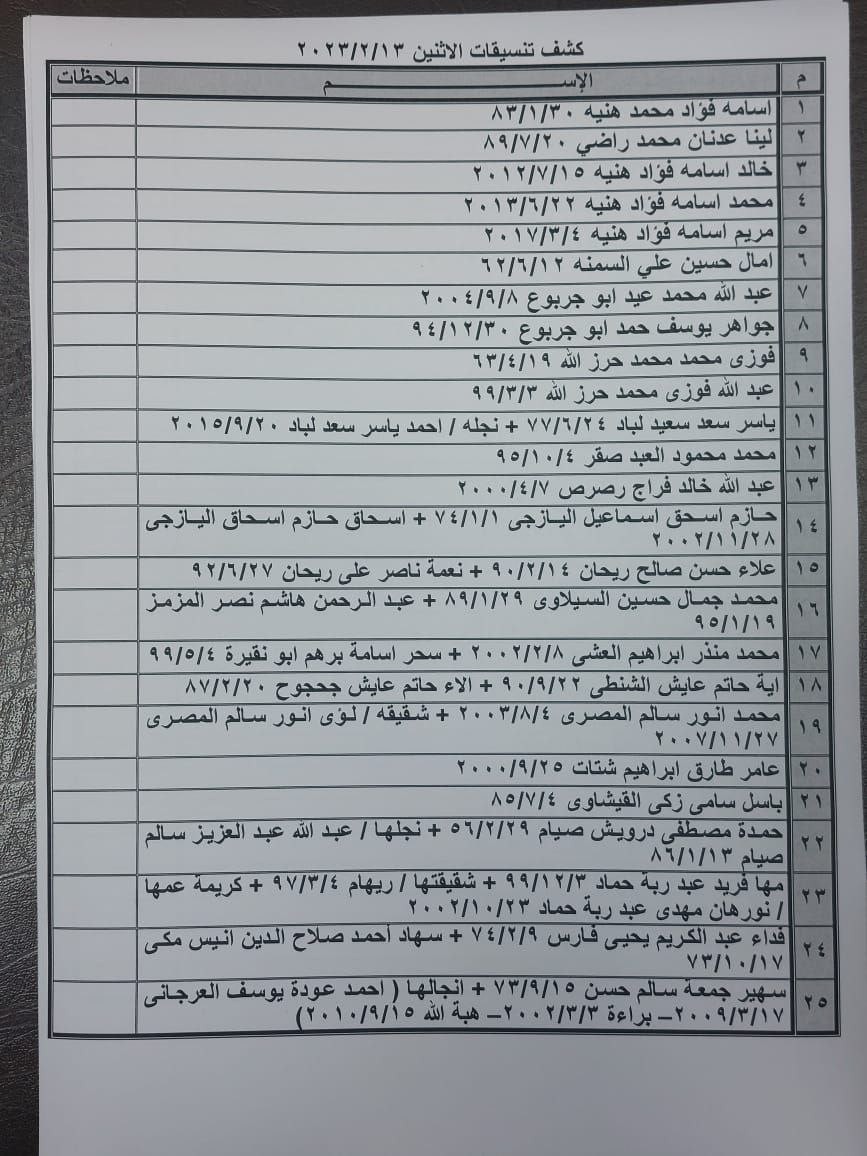 كشف تنسيقات الاثنين ٢٠٢٣/٢/١٣
م الإســــــــم ملاحظات
١ اسامه فؤاد محمد هنيه ٨٣/١/٣٠
٢ لينا عدنان محمد راضي ٨٩/٧/٢٠
٣ خالد اسامه فؤاد هنيه ٢٠١٢/٧/١٥
٤ محمد اسامه فؤاد هنيه ٢٠١٣/٦/٢٢
٥ مريم اسامه فؤاد هنيه ٢٠١٧/٣/٤
٦ امال حسين علي السمنه ٦٢/٦/١٢
٧ عبد الله محمد عيد ابو جربوع ٢٠٠٤/٩/٨
٨ جواهر يوسف حمد ابو جربوع ٩٤/١٢/٣٠
٩ فوزى محمد محمد حرز الله ٦٣/٤/١٩
١٠ عبد الله فوزى محمد حرز الله ٩٩/٣/٣
١١ ياسر سعد سعيد لباد ٧٧/٦/٢٤ + نجله / احمد ياسر سعد لباد ٢٠١٥/٩/٢٠
١٢ محمد محمود العبد صقر ٩٥/١٠/٤
١٣ عبد الله خالد فراج رصرص ٢٠٠٠/٤/٧
١٤ حازم اسحق اسماعيل اليازجى ٧٤/١/١ + اسحاق حازم اسحاق اليازجى
٢٠٠٢/١١/٢٨
١٥ علاء حسن صالح ريحان ٩٠/٢/١٤ + نعمة ناصر على ريحان ٩٢/٦/٢٧
١٦ محمد جمال حسين السيلاوى ٨٩/١/٢٩ + عبد الرحمن هاشم نصر المزمز
٩٥/١/١٩
١٧ محمد منذر ابراهيم العشى ٢٠٠٢/٢/٨ + سحر اسامة برهم ابو نقيرة ٩٩/٥/٤
١٨ اية حاتم عايش الشنطى ٩٠/٩/٢٢ + الاء حاتم عايش جحجوح ٨٧/٢/٢٠
١٩ محمد انور سالم المصرى ٢٠٠٣/٨/٤ + شقيقه / لؤى انور سالم المصرى
٢٠٠٧/١١/٢٧
٢٠ عامر طارق ابراهيم شتات ٢٠٠٠/٩/٢٥
٢١ باسل سامى زكى القيشاوى ٨٥/٧/٤
٢٢ حمدة مصطفى درويش صيام ٥٦/٢/٢٩ + نجلها / عبد الله عبد العزيز سالم
صيام ٨٦/١/١٣
٢٣ مها فريد عبد ربة حماد ٩٩/١٢/٣ + شقيقتها / ريهام ٩٧/٣/٤ + كريمة عمها
/ نورهان مهدى عبد ربة حماد ٢٠٠٢/١٠/٢٣
٢٤ فداء عبد الكريم يحيى فارس ٧٤/٢/٩ + سهاد أحمد صلاح الدين انيس مكى
٧٣/١٠/١٧
٢٥ سهير جمعة سالم حسن ٧٣/٩/١٥ + انجالها ( احمد عودة يوسف العرجانى
٢٠٠٩/٣/١٧– براءة ٢٠٠٢/٣/٣– هبة الله ٢٠١٠/٩/١٥)